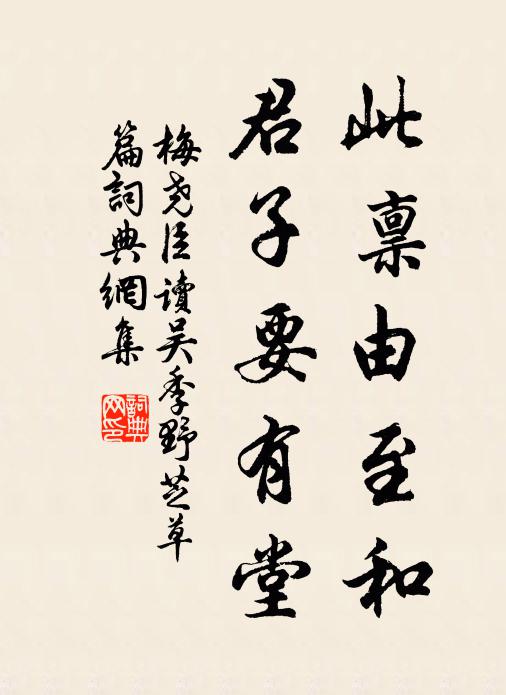 此禀由至和
君子要有堂
梅尧臣读吴季野芝草
篇詞典網集
詞典网印